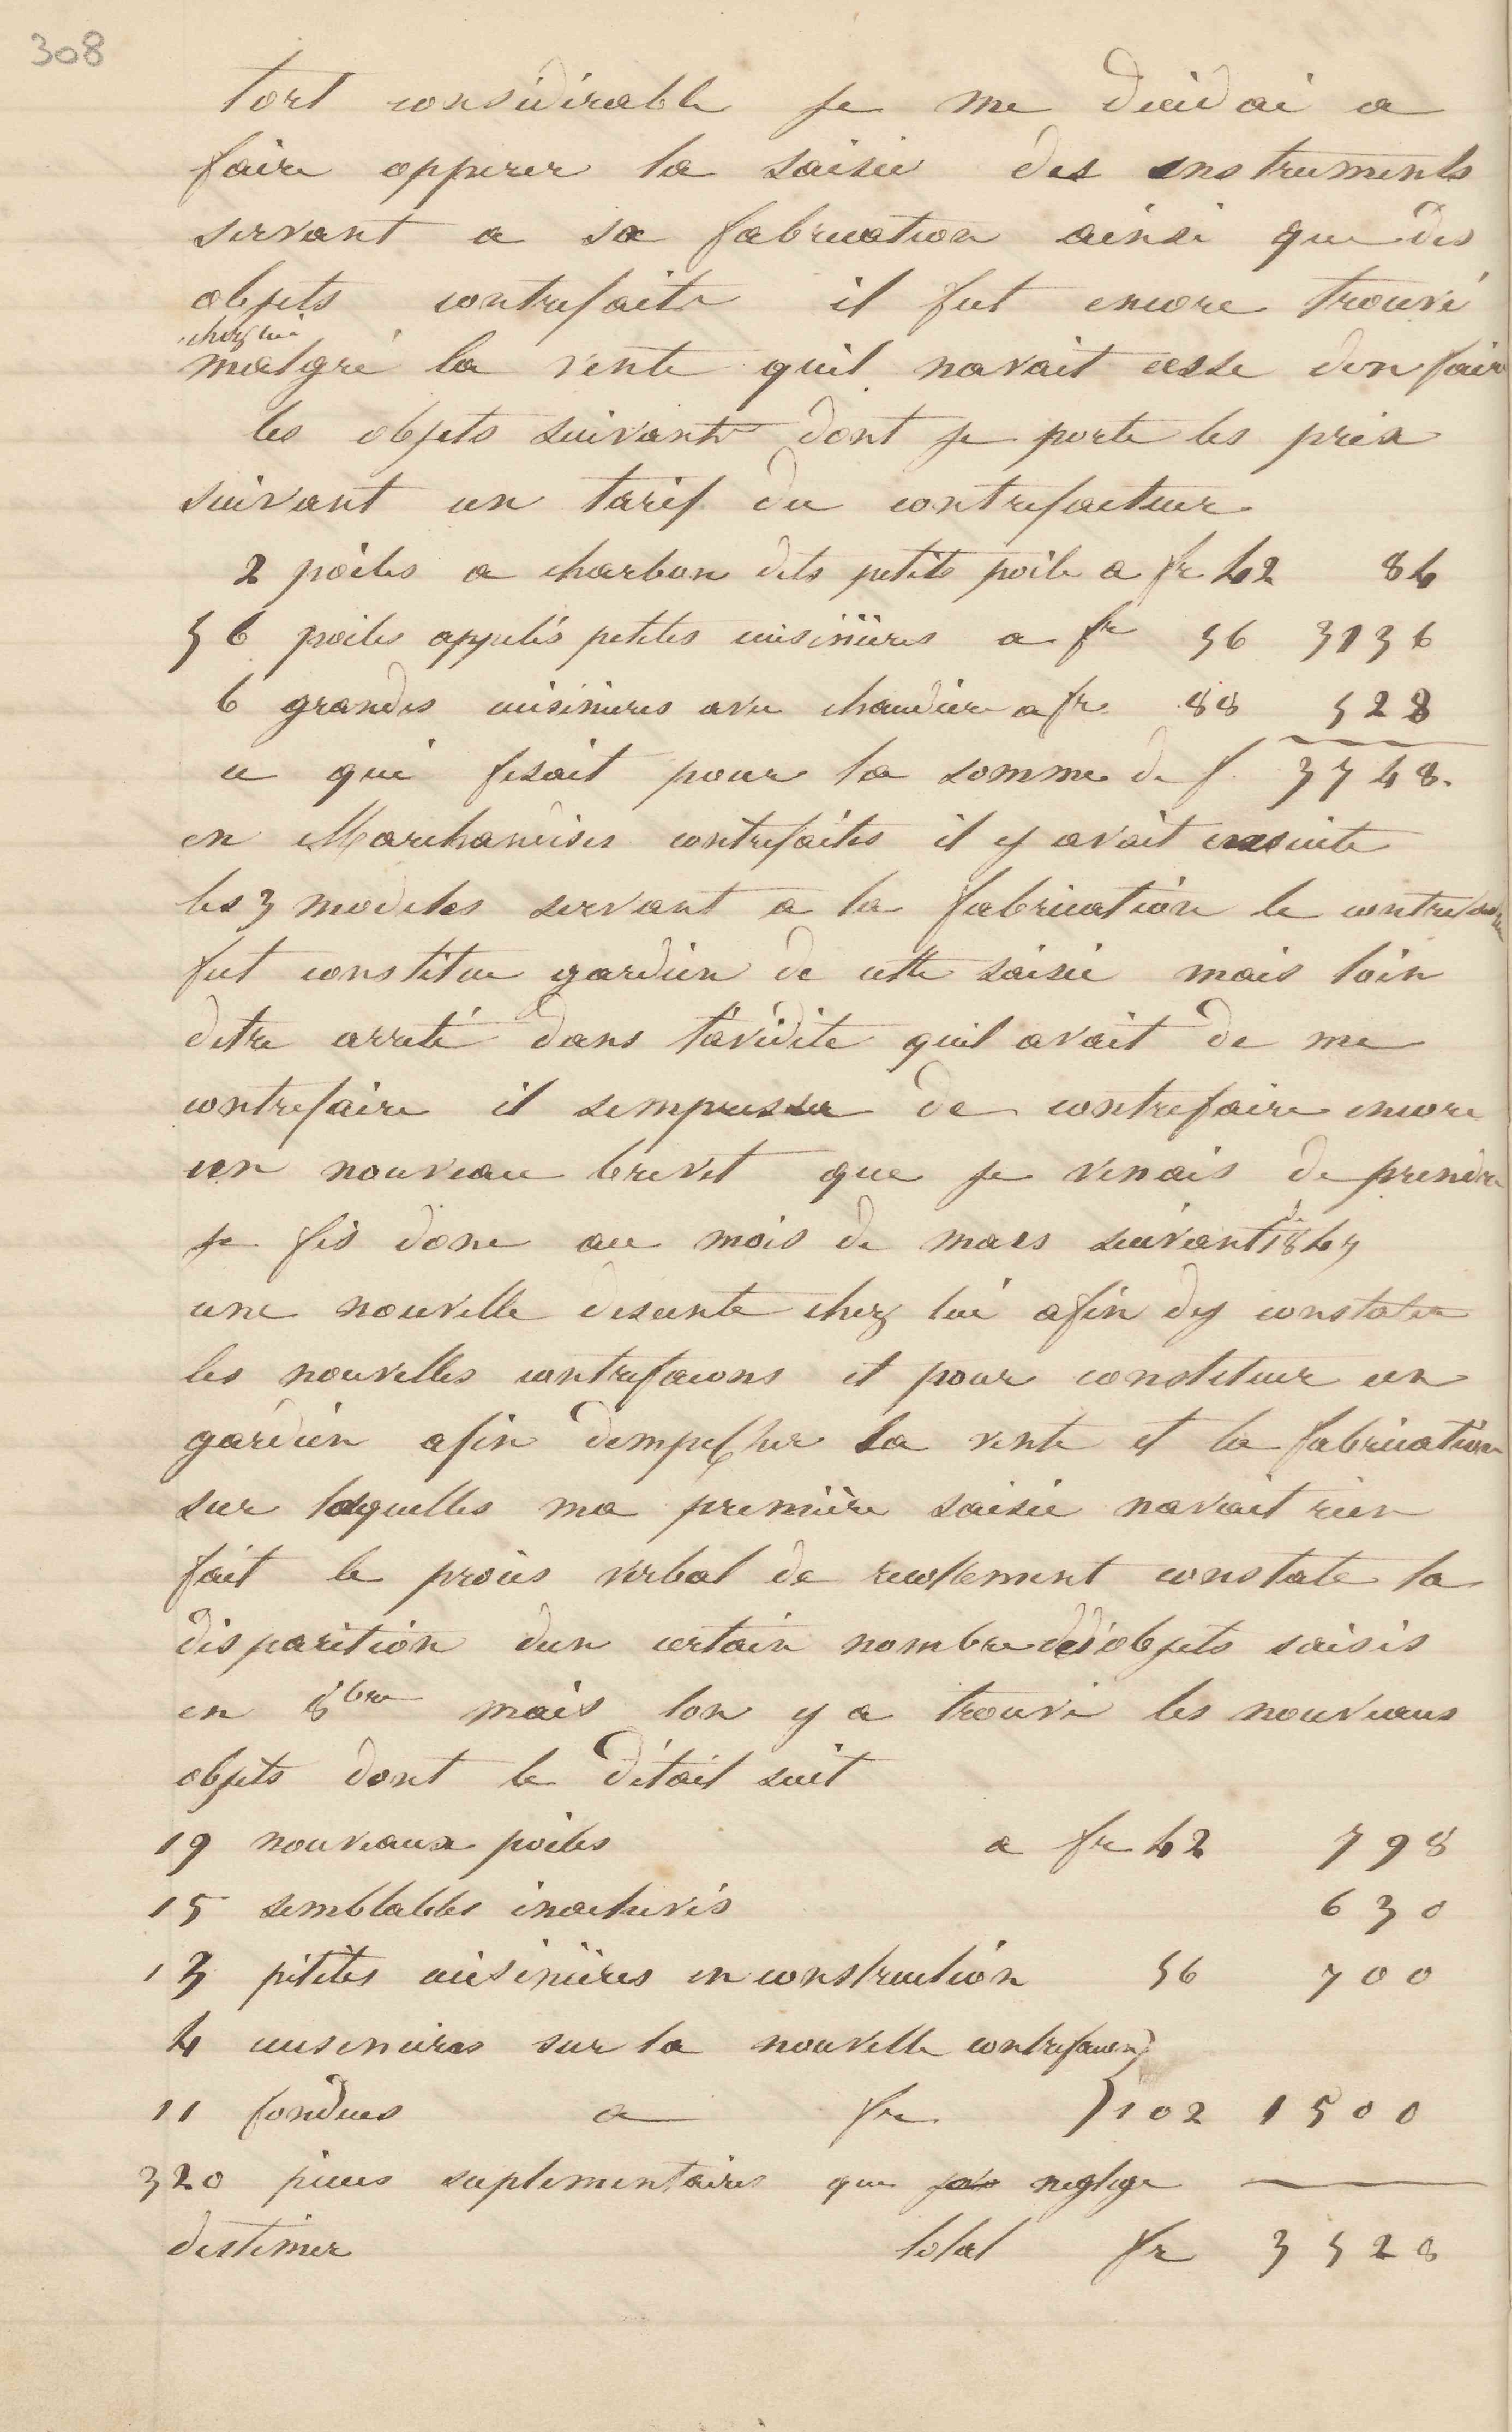 308
tort considérable je me decidai a
faire opperer la saisie des instruments
servant a sa fabrication ainsi que des
objets contrefaits il fut encore trouvé
chez lui
malgré la vente quil navait cesse den faire
les objets suivants dont je porte les prix
suivant un tarif du contrefacteur
2 poêles a charbon dits petits poile a fr 42 84
56 poiles appelés petites cuisinières a fr 56 3136
6 grandes cuisinieres avec chaudiere a fr 88 528
ce qui fesait pour la somme de f. 3748.
en Marchandises contrefaites il y avait ensuite
les 3 modeles servant a la fabrication le contrefacteur
fut constitue gardien de cette saisie mais loin
detre arreté dans l'avidite quil avait de me
contrefaire il sempressa de contrefaire encore
un nouveau brevet que je venais de prendre
je fis donc au mois de mars suivant 1847
une nouvelle descente chez lui afin dy constater
les nouvelles contrefacons et pour constituer un
gardien afin dempecher la vente et la fabrication
sur lesquelles ma première saisie navait rien
fait le procès verbal de recollement constate la
disparition dun certain nombre des objets saisis
en 8bre mais lon y a trouvé les nouveaux
objets dont le détail suit
19 nouveaux poiles a fr 42 798
15 semblables inachevés 630
13 petites cuisinières en construction 56 700
4 cuisinieres sur la nouvelle contrefacon
11 fondues a fr 102 1500
320 pieces suplementaires que je neglige
destimer total fr 3528